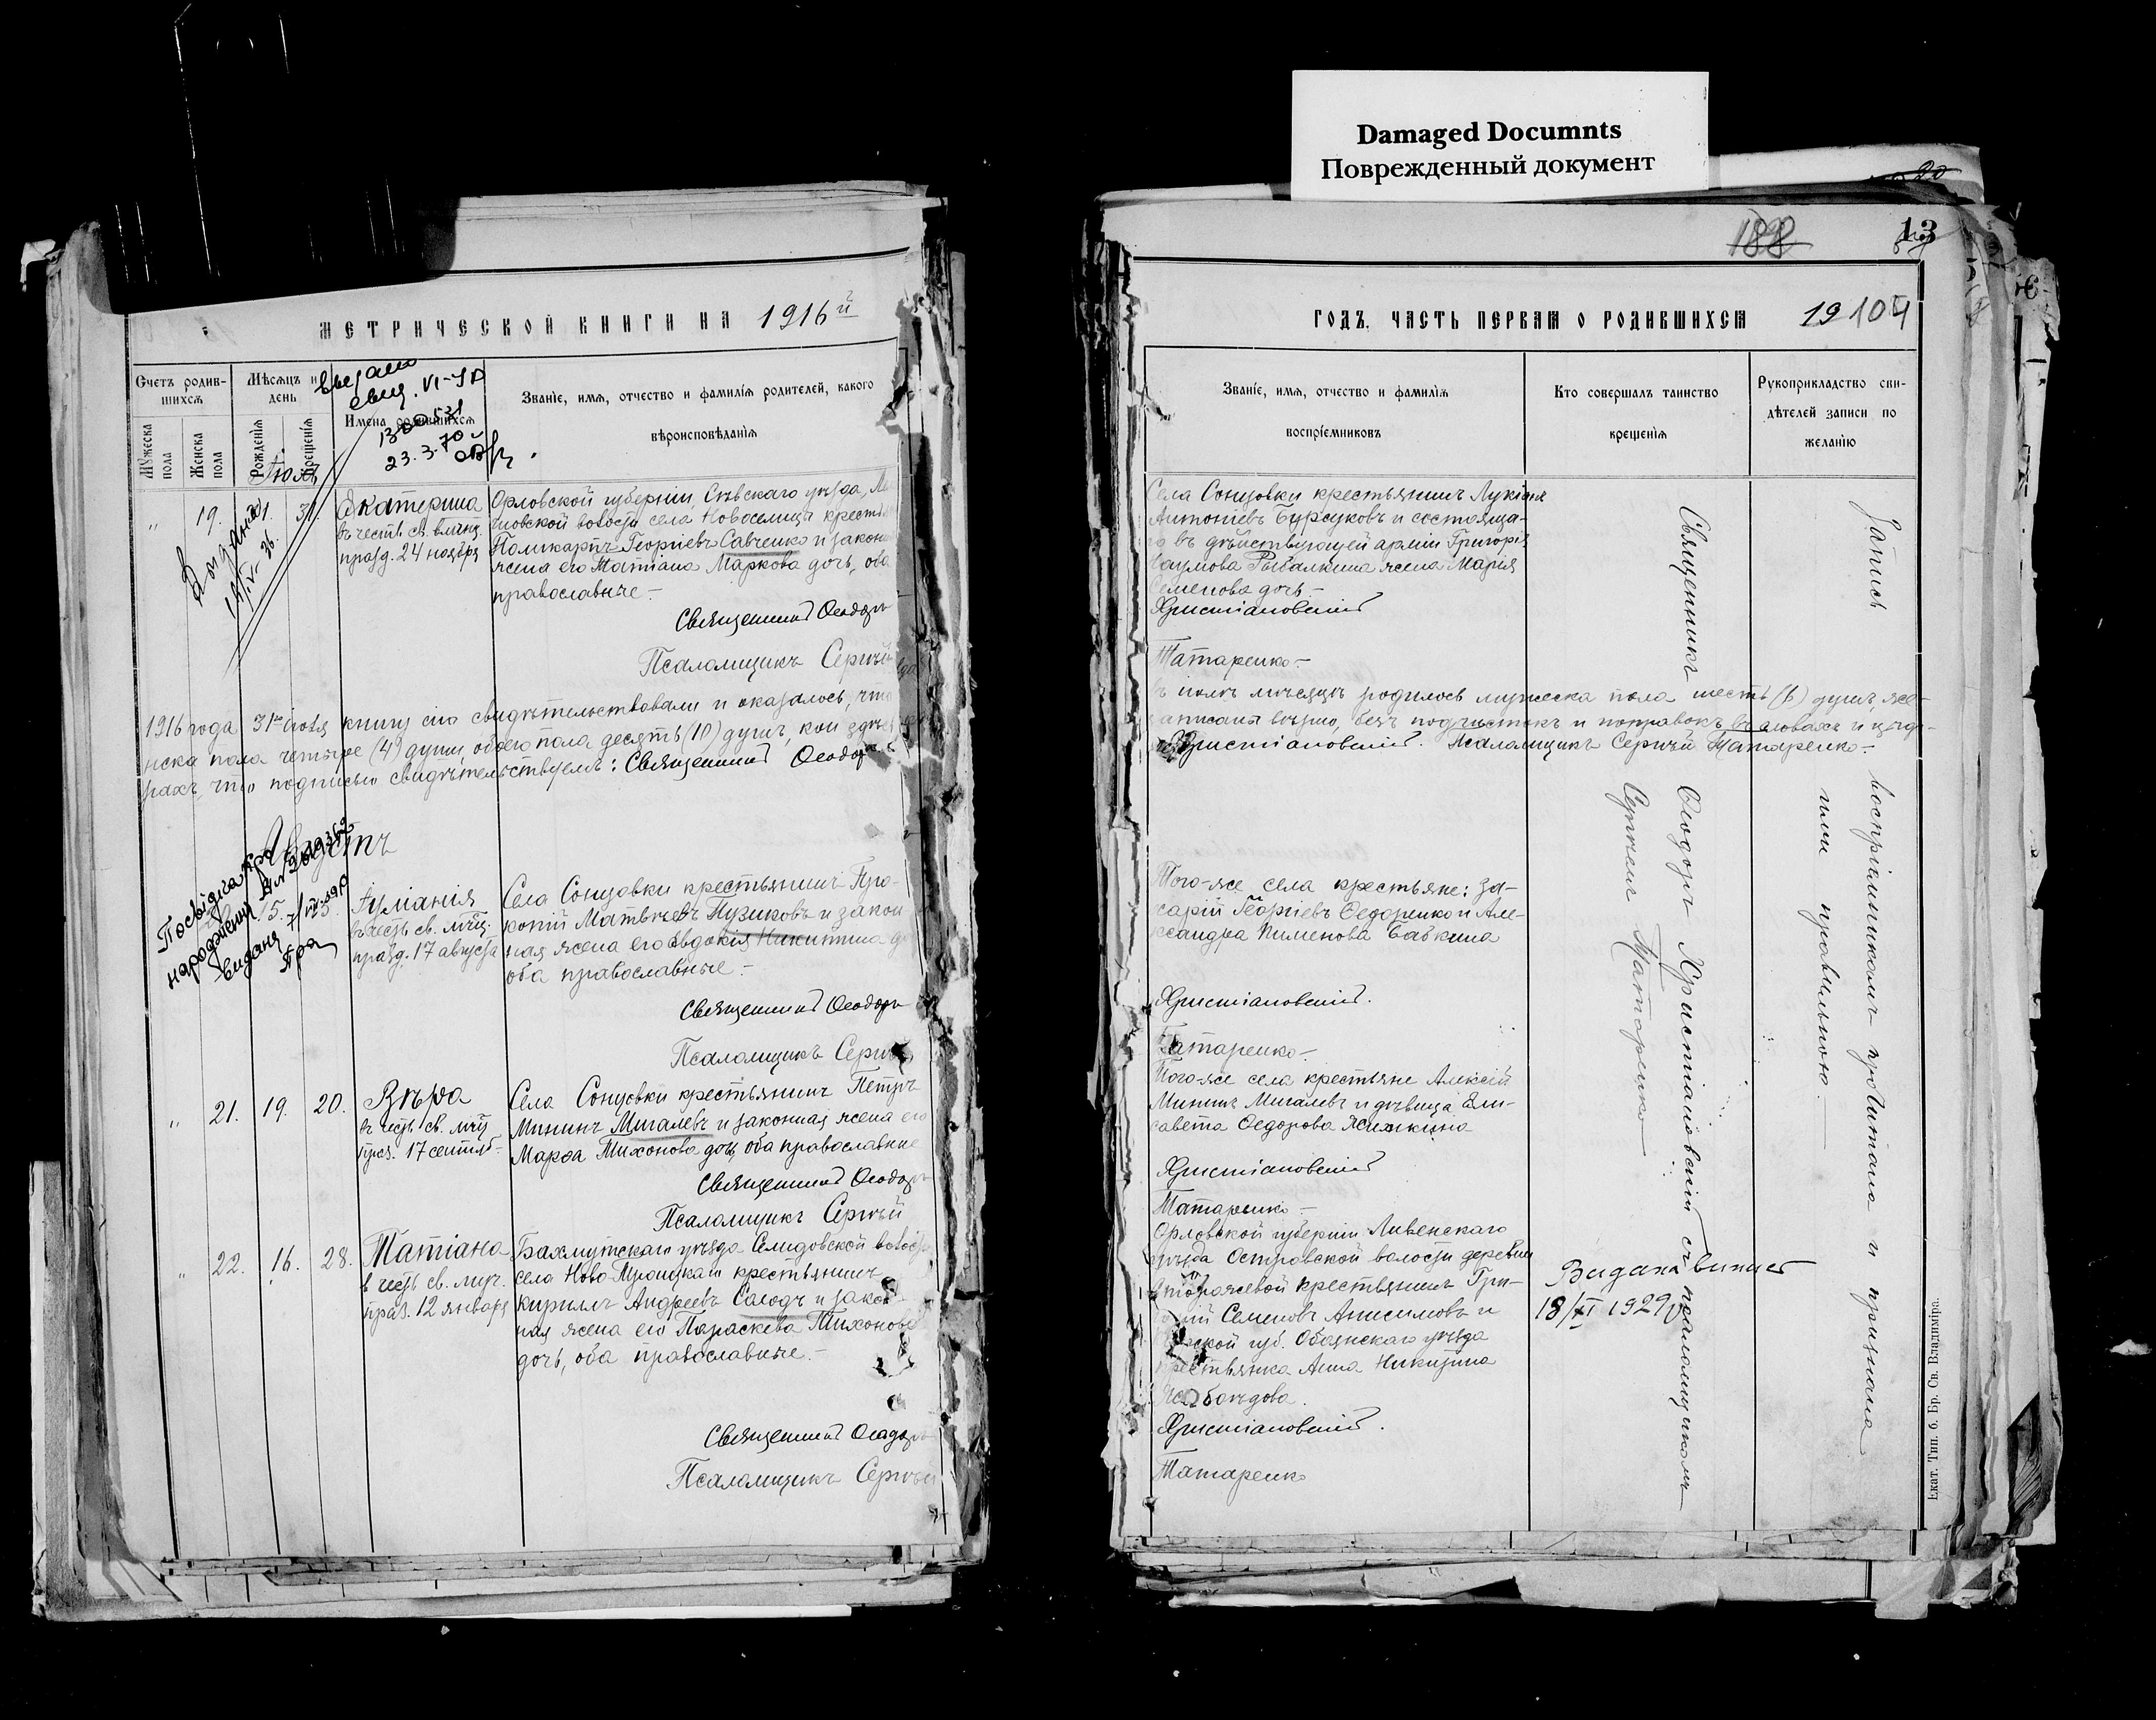 Damaged Documnts
Поврежденный документ
20
188
13
МЕТРИЧЕСКОЙ КНИГИ НА 1916й
Счетъ родив-
шихся
Мѣсяцъ и
день
Мужеска
пола
Женска
пола
Рожденія
Крещенія
Имена родившихся
Званіе, имя, отчество и фамилія родителей, какого
вѣроисповѣданія
23.3.70
Іюль
" 19. 31.
Екатерина
въ честь св. влмчц.
празд. 24 ноября
Орловской губерніи, Сѣвскаго уѣзда,
волости села Новоселица
Поликарпъ Георгіевъ Савченко и
жена его Татіана Маркова дочь, оба
православные.-
Священникъ Ѳеодоръ
Псаломщикъ Сергѣй
1916 года 31го іюля книгу сію свидѣтельствовали и оказалось, что
нска пола четыре (4) души, обоего пола десять (10) душъ, кои
рахъ, что подписью свидѣтельствуемъ: Священникъ Ѳеодоръ
Августъ
Посвідка про
народження
видана
15.
въ честь св. мчц.
празд. 17 августа
Села Сонцовки крестьянинъ Про-
копій Матвѣевъ Пузиковъ и закон
ная жена его Евдокія Никитина
оба православные.-
Священникъ Ѳеодоръ
Псаломщикъ Сергѣй
" 21. 19. 20.
Вѣра
въ честь св. мчц
празд. 17 сентяб-
Села Сонцовки крестьянинъ Петръ
Мининъ Мигалевъ и законная жена его
Марѳа Тихонова дочь, оба православные
Священникъ Ѳеодоръ
Псаломщикъ Сергѣй
" 22. 16. 28.
Татіана
в честь св. муч.
празд. 12 января
Бахмутскаго уѣзда Селидовской волости
села Ново-Троицкаго крестьянинъ
Кириллъ Андреевъ Солодъ и закон-
ная жена его Параскева Тихонова
дочь, оба православные.-
Священникъ Ѳеодоръ
Псаломщикъ Сергѣй
ГОДЪ. ЧАСТЬ ПЕРВАЯ О РОДИВШИХСЯ 19 104
Званіе, имя, отчество и фамилія
воспріемниковъ
Кто совершалъ таинство
крещенія
Рукоприкладство сви-
дѣтелей записи по
желанію
Села Сонцовки крестьянинъ Лукіанъ
Антоніевъ Бурсуковъ и состояща-
го въ дѣйствующей арміи Григорія
Наумова Рыбалкина жена Марія
Семенова дочь.-
Христіановскій
Татаренко.-
въ іюлѣ мѣсяцѣ родилось мужеска пола шесть (6) душъ, же-
записаны вѣрно, безъ подчистокъ и поправокъ въ словахъ и циф-
Христіановскій. Псаломщикъ Сергѣй Татаренко.-
Того-же села крестьяне: За-
харій Георгіевъ Ѳедоренко и Але-
ксандра Пименова Бабкина
Христіановскій.
Татаренко.-
Того-же села крестьяне Алексій
Мининъ Мигалевъ и дѣвица Ели-
савета Ѳедорова
Христіановскій
Татаренко.-
Орловской губерніи Ливенскаго
уѣзда Островской волости деревни
крестьянинъ Гри-
горій Семеновъ Анисимовъ и
Курской губ. Обоянскаго уѣзда
крестьянка Анна Никитина
Христіановскій.
Татаренко
Священникъ Ѳеодоръ Христіановскій съ псаломщикомъ
Сергѣемъ Татаренко
Видана виписъ
18/XI 1929р
Запись воспріемникомъ прочитана и признана
ими правильною.
Екат. Тип. б. Бр. Св. Владиміра.